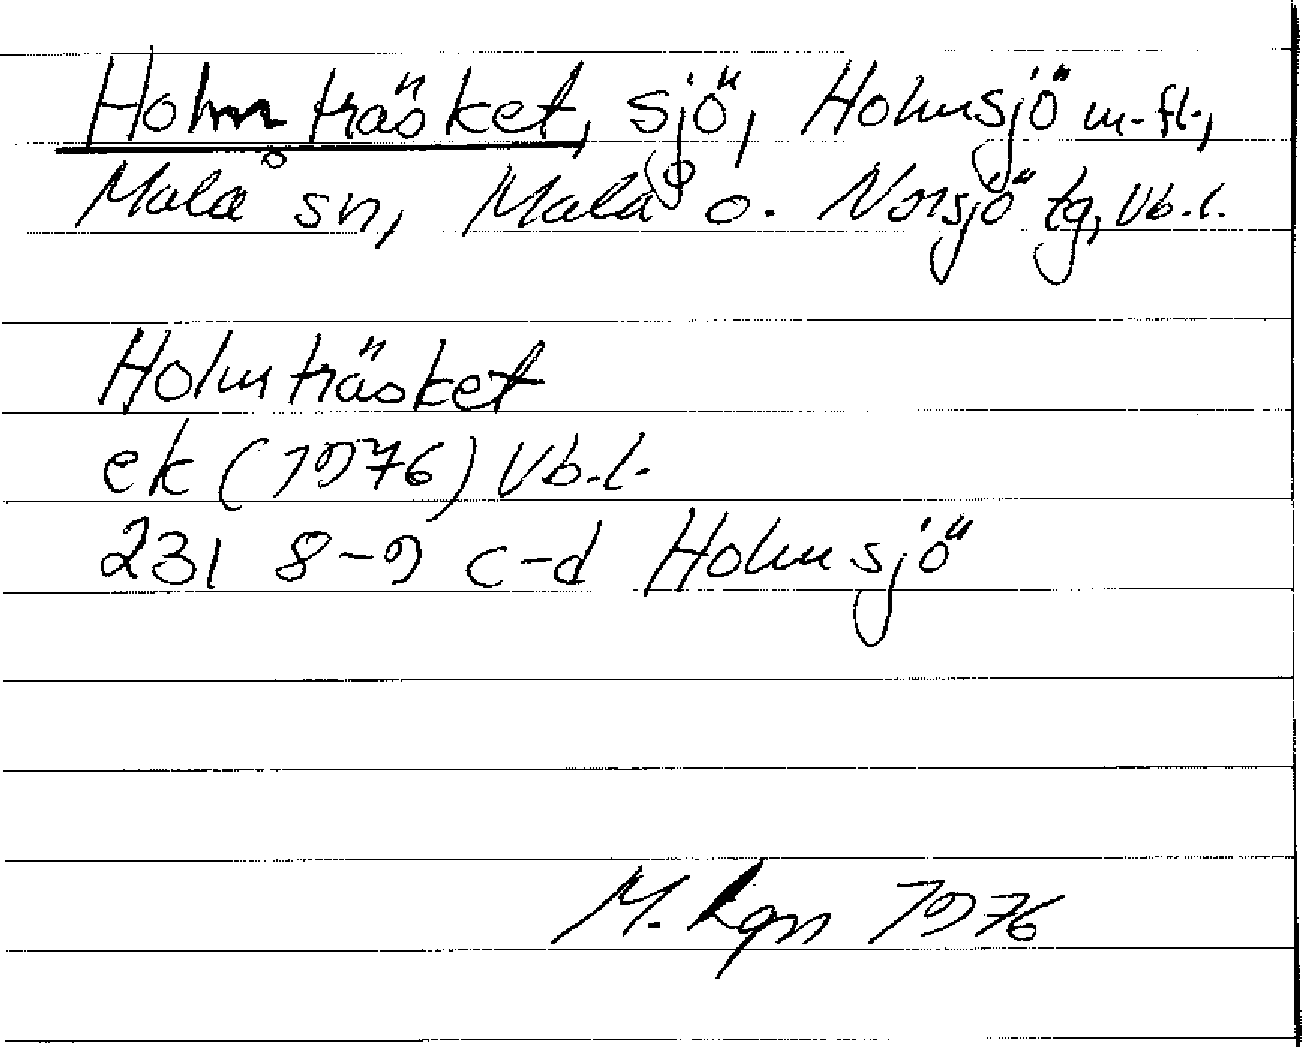 Holmträsket, sjö, Holmsjö m.fl.,
Malå sn, Malå o. Norsjö tg, Vb.l.
Holmträsket
ek (1976) Vb.l.
231 8-9 c-d Holmsjö
M. 1976